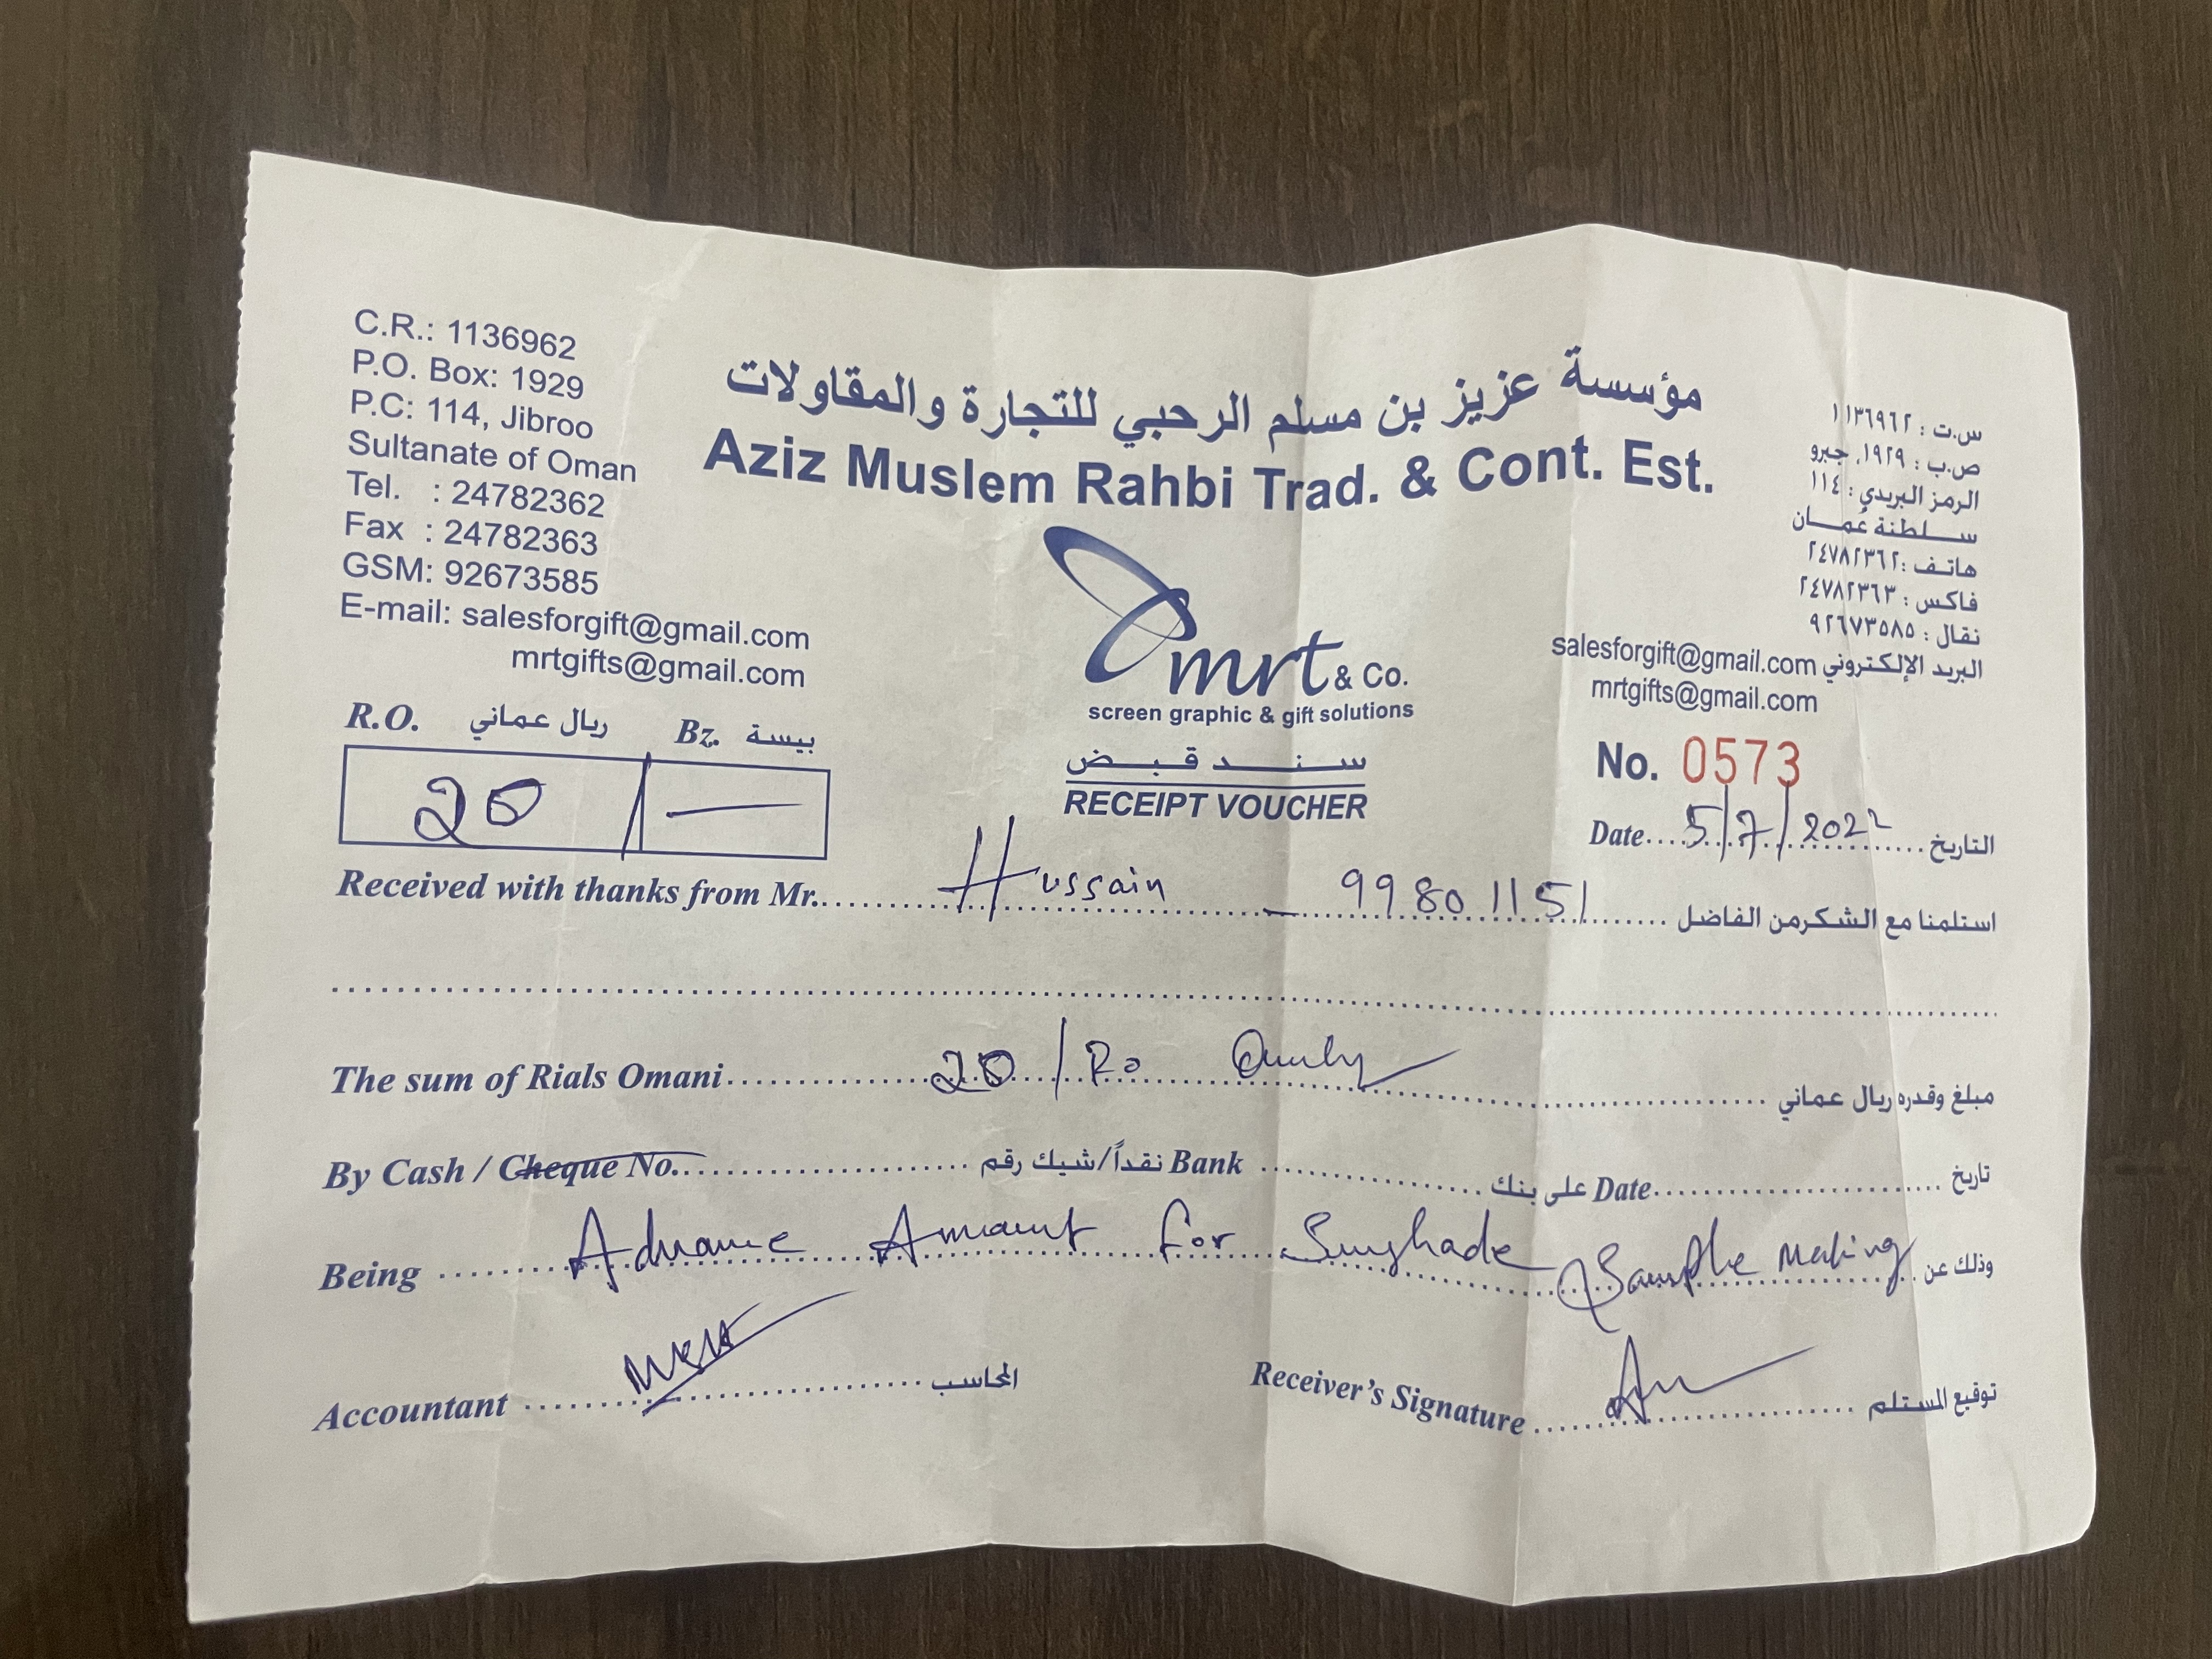 C.R.: 1136962
P.O. Box: 1929
P.C: 114, Jibroo
Sultanate of Oman
Tel. : 24782362
Fax : 24782363
GSM: 92673585
E-mail: salesforgift@gmail.com
mrtgifts@gmail.com
مؤسسة عزيز بن مسلم الرحبي للتجارة والمقاولات
Aziz Muslem Rahbi Trad. & Cont. Est.
mrt & Co.
screen graphic & gift solutions
س.ت : ١١٣٦٩٦٢
ص.ب : ١٩٢٩، جبرو
الرمز البريدي : ١١٤
سلطنة عُمان
هاتف : ٢٤٧٨٢٣٦٢
فاكس : ٢٤٧٨٢٣٦٣
نقال : ٩٢٦٧٣٥٨٥
البريد الإلكتروني salesforgift@gmail.com
mrtgifts@gmail.com
R.O. ريال عماني Bz. بيسة
20 / —
سند قبض
RECEIPT VOUCHER
No. 0573
Date 5/7/2022 التاريخ
Received with thanks from Mr. Hussain - 99801151 استلمنا مع الشكرمن الفاضل
The sum of Rials Omani 20/Ro Only مبلغ وقدره ريال عماني
By Cash / Cheque No. نقداً/شيك رقم Bank على بنك Date تاريخ
Being Advance Amount for Sunshade Sample Making وذلك عن
Accountant المحاسب
Receiver's Signature توقيع المستلم